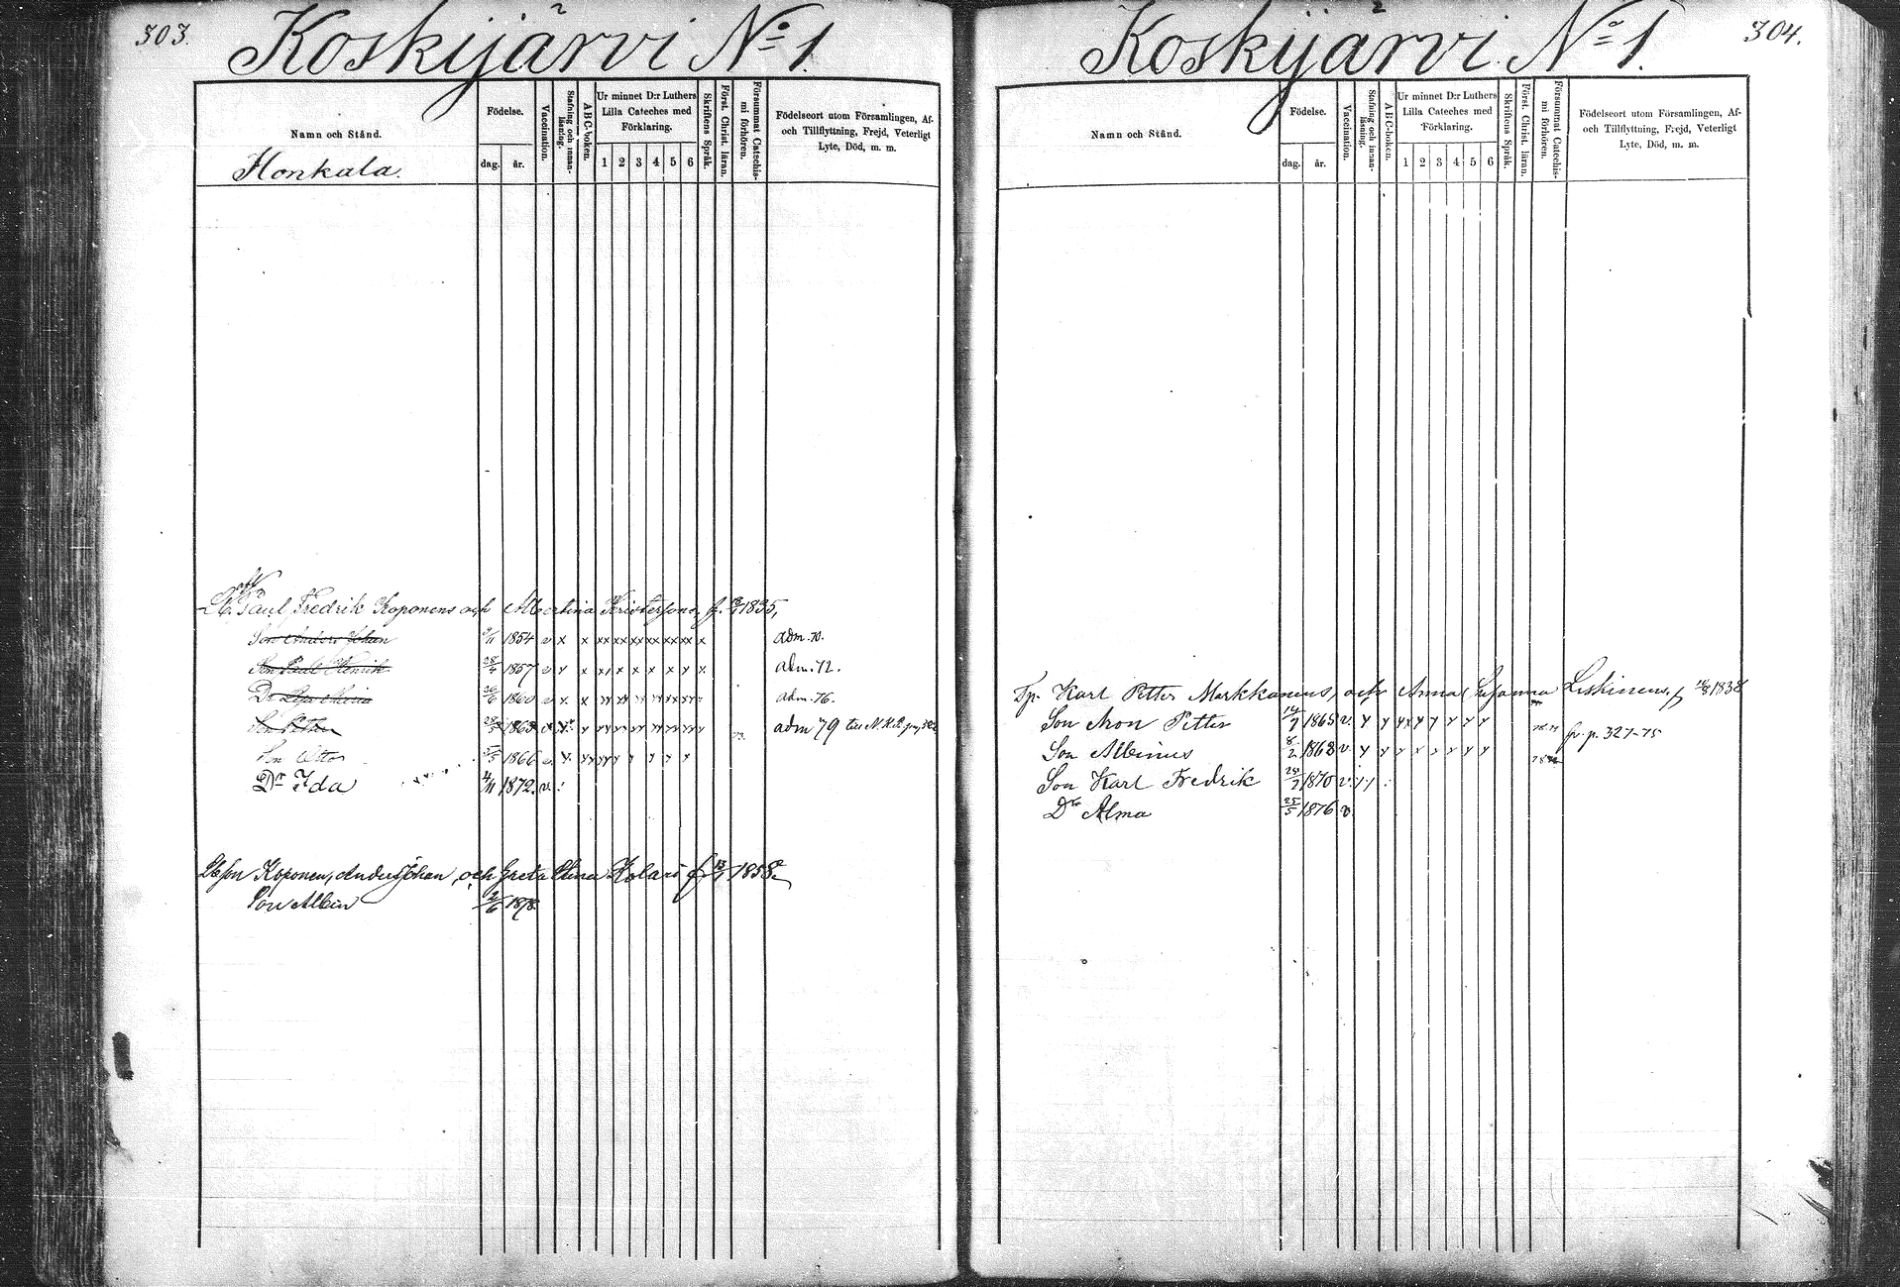 303.
Koskijärvi No 1.
Namn och Stånd.
Födelse.
dag.
år.
Vaccination.
Stafning och innan-läsning.
ABC-boken.
Ur minnet D:r Luthers
Lilla Cateches med
Förklaring.
1 2 3 4 5 6
Skriftens Språk.
Först. Christ. läran.
Försummat Catechis-mi förhören.
Födelseort utom Församlingen, Af-
och Tillflyttning, Frejd, Veterligt
Lyte, Död, m. m.
Honkala.
Paul Fredrik Koponens och Albertina Kristersons f. 1835,
Son Anders Johan 9/11 1854 v x x xx xx xx xx xx xx x adm. 70.
Son Paul Henrik 28/4 1857 v x x adm. 72.
Dr Maria 1860 v x x adm. 76.
Son Petter 1863 adm 79
Son Otto 1866 v
Dr Ida 4/11 1872. v.
Koponen, Anders Johan och Greta Stina Kolari f 1858.
Son Albin 2/6 1878.
304.
Koskijärvi No 1.
Namn och Stånd.
Födelse.
dag.
år.
Vaccination.
Stafning och innan-läsning.
ABC-boken.
Ur minnet D:r Luthers
Lilla Cateches med
Förklaring.
1 2 3 4 5 6
Skriftens Språk.
Först. Christ. läran.
Försummat Catechis-mi förhören.
Födelseort utom Församlingen, Af-
och Tillflyttning, Frejd, Veterligt
Lyte, Död, m. m.
Karl Petter Markkanens, och Anna Susanna Leskinens, f 1838
Son Aron Petter 14/7 1865 v. fr. p. 327-75
Son Albinus 8/2 1868 v.
Son Karl Fredrik 28/7 1870 v.
Dr Alma 25/5 1876 v